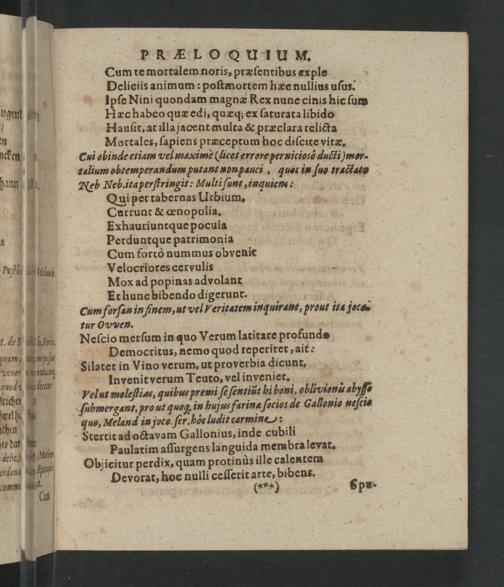 PRÆLOQUIUM.
Cum te mortalem noris, præsentibus exple
Deliciis animum: post mortem hæc nullius usus.
Ipse Nini quondam magnæ Rex nunc cinis hic sum
Hæc habeo quæ edi, quæq; exsaturata libido
Hausit, at illa jacent multa & præclara relicta
Mortales, sapiens præceptum hoc discite vitæ.
Cui obinde etiam vel maximè (licet errore perniciosô ducti) mor-
talium obtemperandum putant non pauci, quos in suo tractato
Neb Neb. ita perstringit: Multi sunt, inquiem:
Qui per tabernas Urbium,
Currunt & œnopolia.
Exhauriuntque pocula
Perduntque patrimonia
Cum fortò nummus obvenit
Velocriores cervulis
Mox ad popinas advolant
Et hunc bibendo digerunt.
Cum forsan in finem, ut vel Veritatem inquirant, prout ita joca-
tur Owen.
Nescio mersum in quo Verum latitare profundo
Democritus, nemo quod reperitet, ait:
Si latet in Vino verum, ut proverbia dicunt,
Invenit verum Teuto, vel inveniet.
Vel ut molestias, quibus premi se sentiût hi boni, oblivionis abysso
submergant, prout quoq, in hujus farinæ socios de Gallonio nescio
quo, Meland in joco. ser. hôc ludit carmine:
Stertit ad octavam Gallonius, inde cubili
Paulatim assurgens languida membra levat.
Objicitur perdix, quam protinùs ille calentem
Devorat, hoc nulli cesserit arte, bibens.
(***)
Spu-